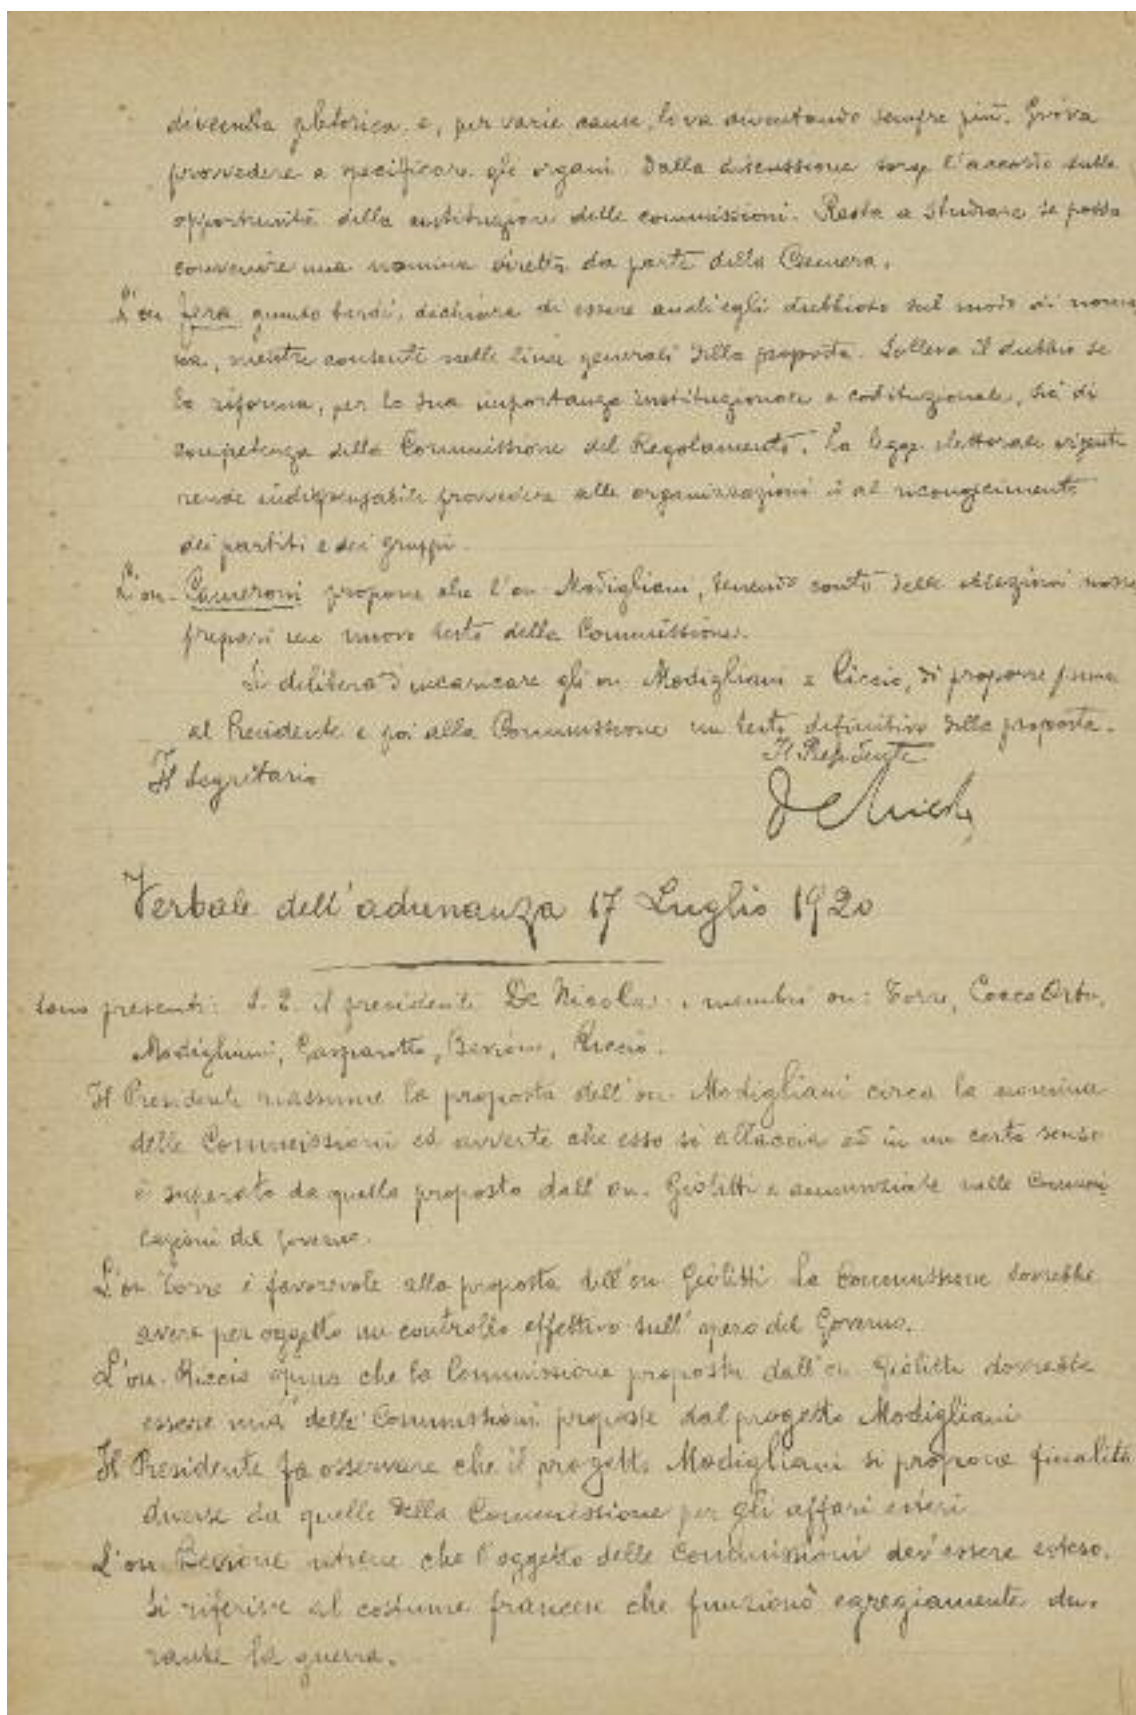 diventa pletorica e, per varie cause, lo va diventando sempre più. Giova
provvedere a specificare gli organi. Dalla discussione sorge l'accordo sulla
opportunità della costituzione delle commissioni. Resta a studiare se possa
convenire una nomina diretta da parte della Camera.
L'on. Fera giunto tardi, dichiara di essere anch'egli dubbioso sul modo di nomi
na, mentre consente nelle linee generali della proposta. Solleva il dubbio se
la riforma, per la sua importanza institutzionale e costituzionale, sia di
competenza della Commissione del Regolamento. La legge elettorale vigente
rende indispensabile provvedere alle organizzazioni e al riconoscimento
dei partiti e dei gruppi.
L'on. Cameroni propone che l'on Modigliani, tenendo conto delle obiezioni mosse
prepari un nuovo testo della Commissione.
Si delibera d'incaricare gli on Modigliani e Riccio, di proporre prima
al Presidente e poi alla Commissione un testo definitivo della proposta.
Il Segretario
Il Presidente
De Nicola
Verbale dell'adunanza 17 Luglio 1920
Sono presenti: S. E. il presidente De Nicola i membri on: Torre, Cocco Ortu,
Modigliani, Gasparotto, Bevione, Riccio.
Il Presidente riassume la proposta dell'on. Modigliani circa la nomina
delle Commissioni ed avverte che esso si allaccia ed in un certo senso
è superato da quella proposta dall'on. Giolitti e annunziate nelle Comuni
cazioni del governo.
L'on Torre è favorevole alla proposta dell'on Giolitti la Commissione dovrebbe
avere per oggetto un controllo effettivo sull'opera del Governo.
L'on. Riccio opina che la Commissione proposta dall'on Giolitti dovrebbe
essere una delle Commissioni proposte dal progetto Modigliani
Il Presidente fa osservare che il progetto Modigliani si propone finalità
diverse da quelle della Commissione per gli affari esteri
L'on Bevione ritiene che l'oggetto delle Commissioni dev'essere esteso.
Si riferisce al costume francese che funzionò egregiamente du-
rante la guerra.